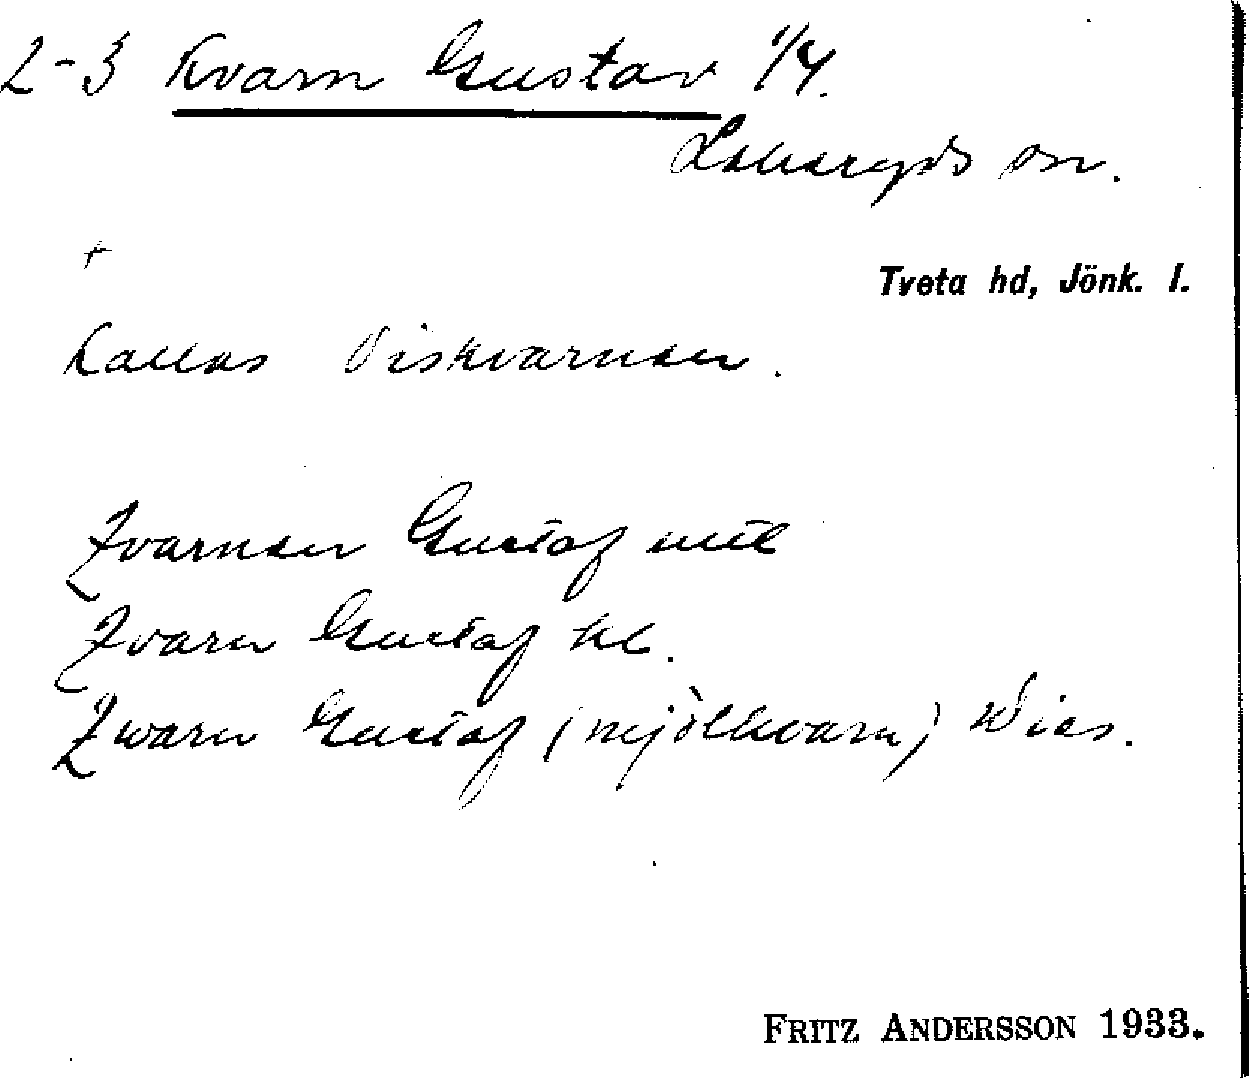 2-3 Kvarn Gustav 1/4.
Lekeryds sn.
Tveta hd, Jönk. l.
Kallas Viskvarnen.
Kvarnen Gustaf
Kvarn Gustaf kl.
Kwarn Gustaf (mjölkvarn) Wies.
FRITZ ANDERSSON 1933.